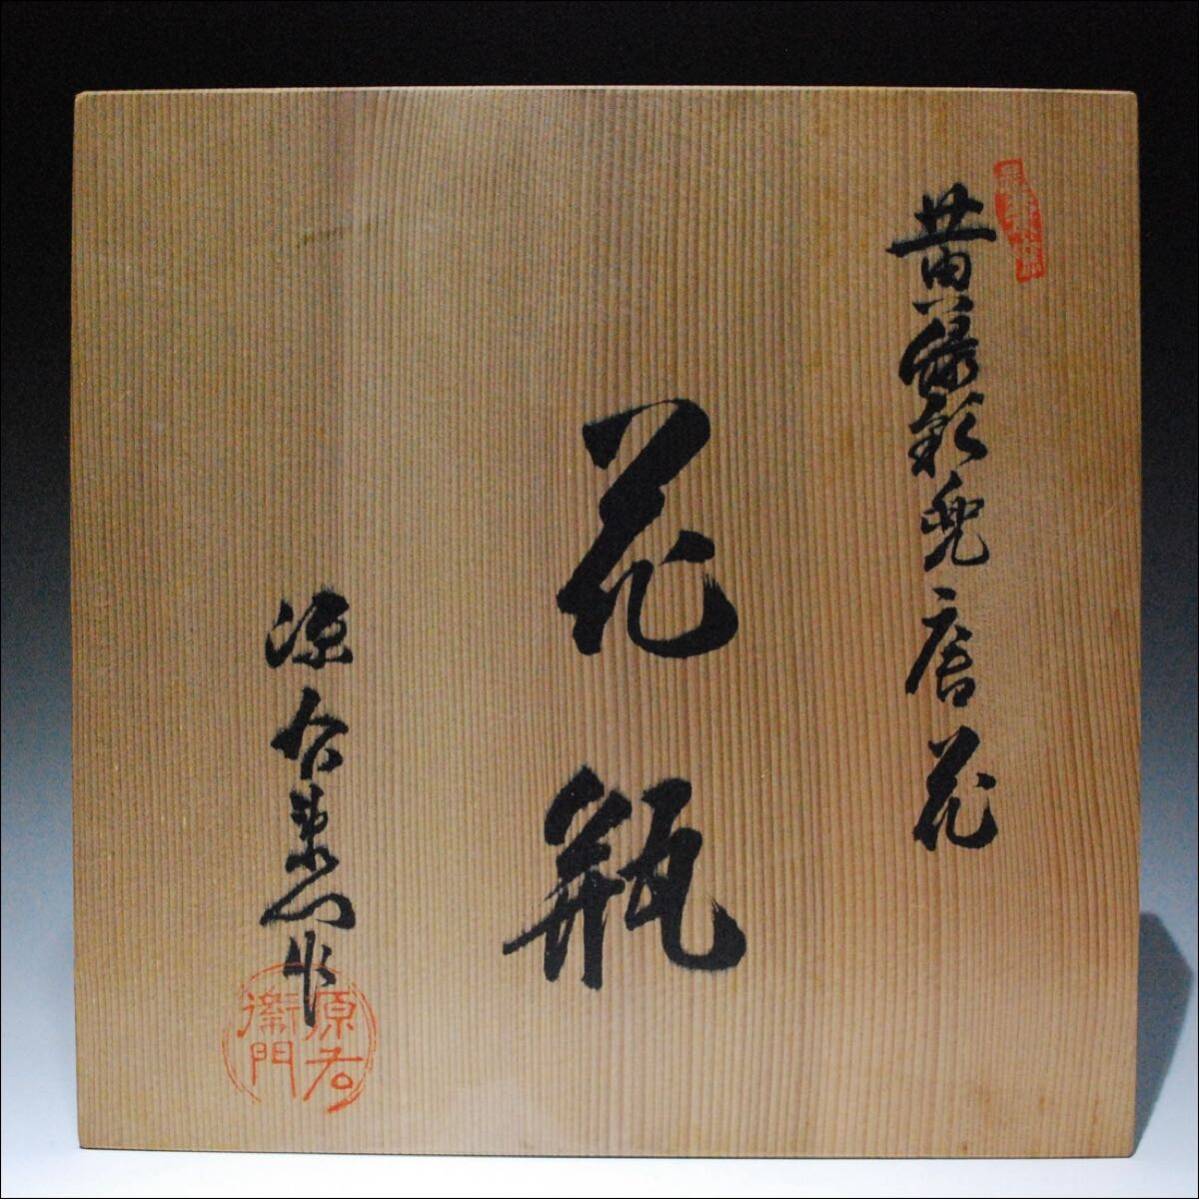 黄緑彩兜唐花
花瓶
源右衛門作
源右
衛門